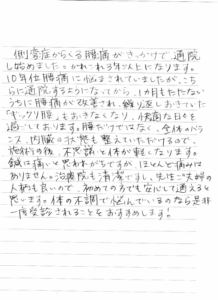 側弯症からくる腰痛がきっかけで、通院
し始めました。かれこれ3年以上になります。
10年位腰痛に悩まされていましたが、こち
らに通院するようになってから、1か月もたたない
うちに腰痛が改善され、繰り返しおきていた
ギックリ腰もおきなくなり、快適な日々を
過しております。腰だけではなく、全体のバラ
ンス、内臓の状態も整えていただけるので、
施術の後、不思議と体が軽くなります。
鍼は痛いと思われがちですが、ほとんど痛みは
ありません。治療院も清潔ですし、先生ご夫婦の
人柄も良いので、初めての方でも安心して通えると
思います。体の不調で悩んでいるのなら是非
一度受診されることをおすすめします!